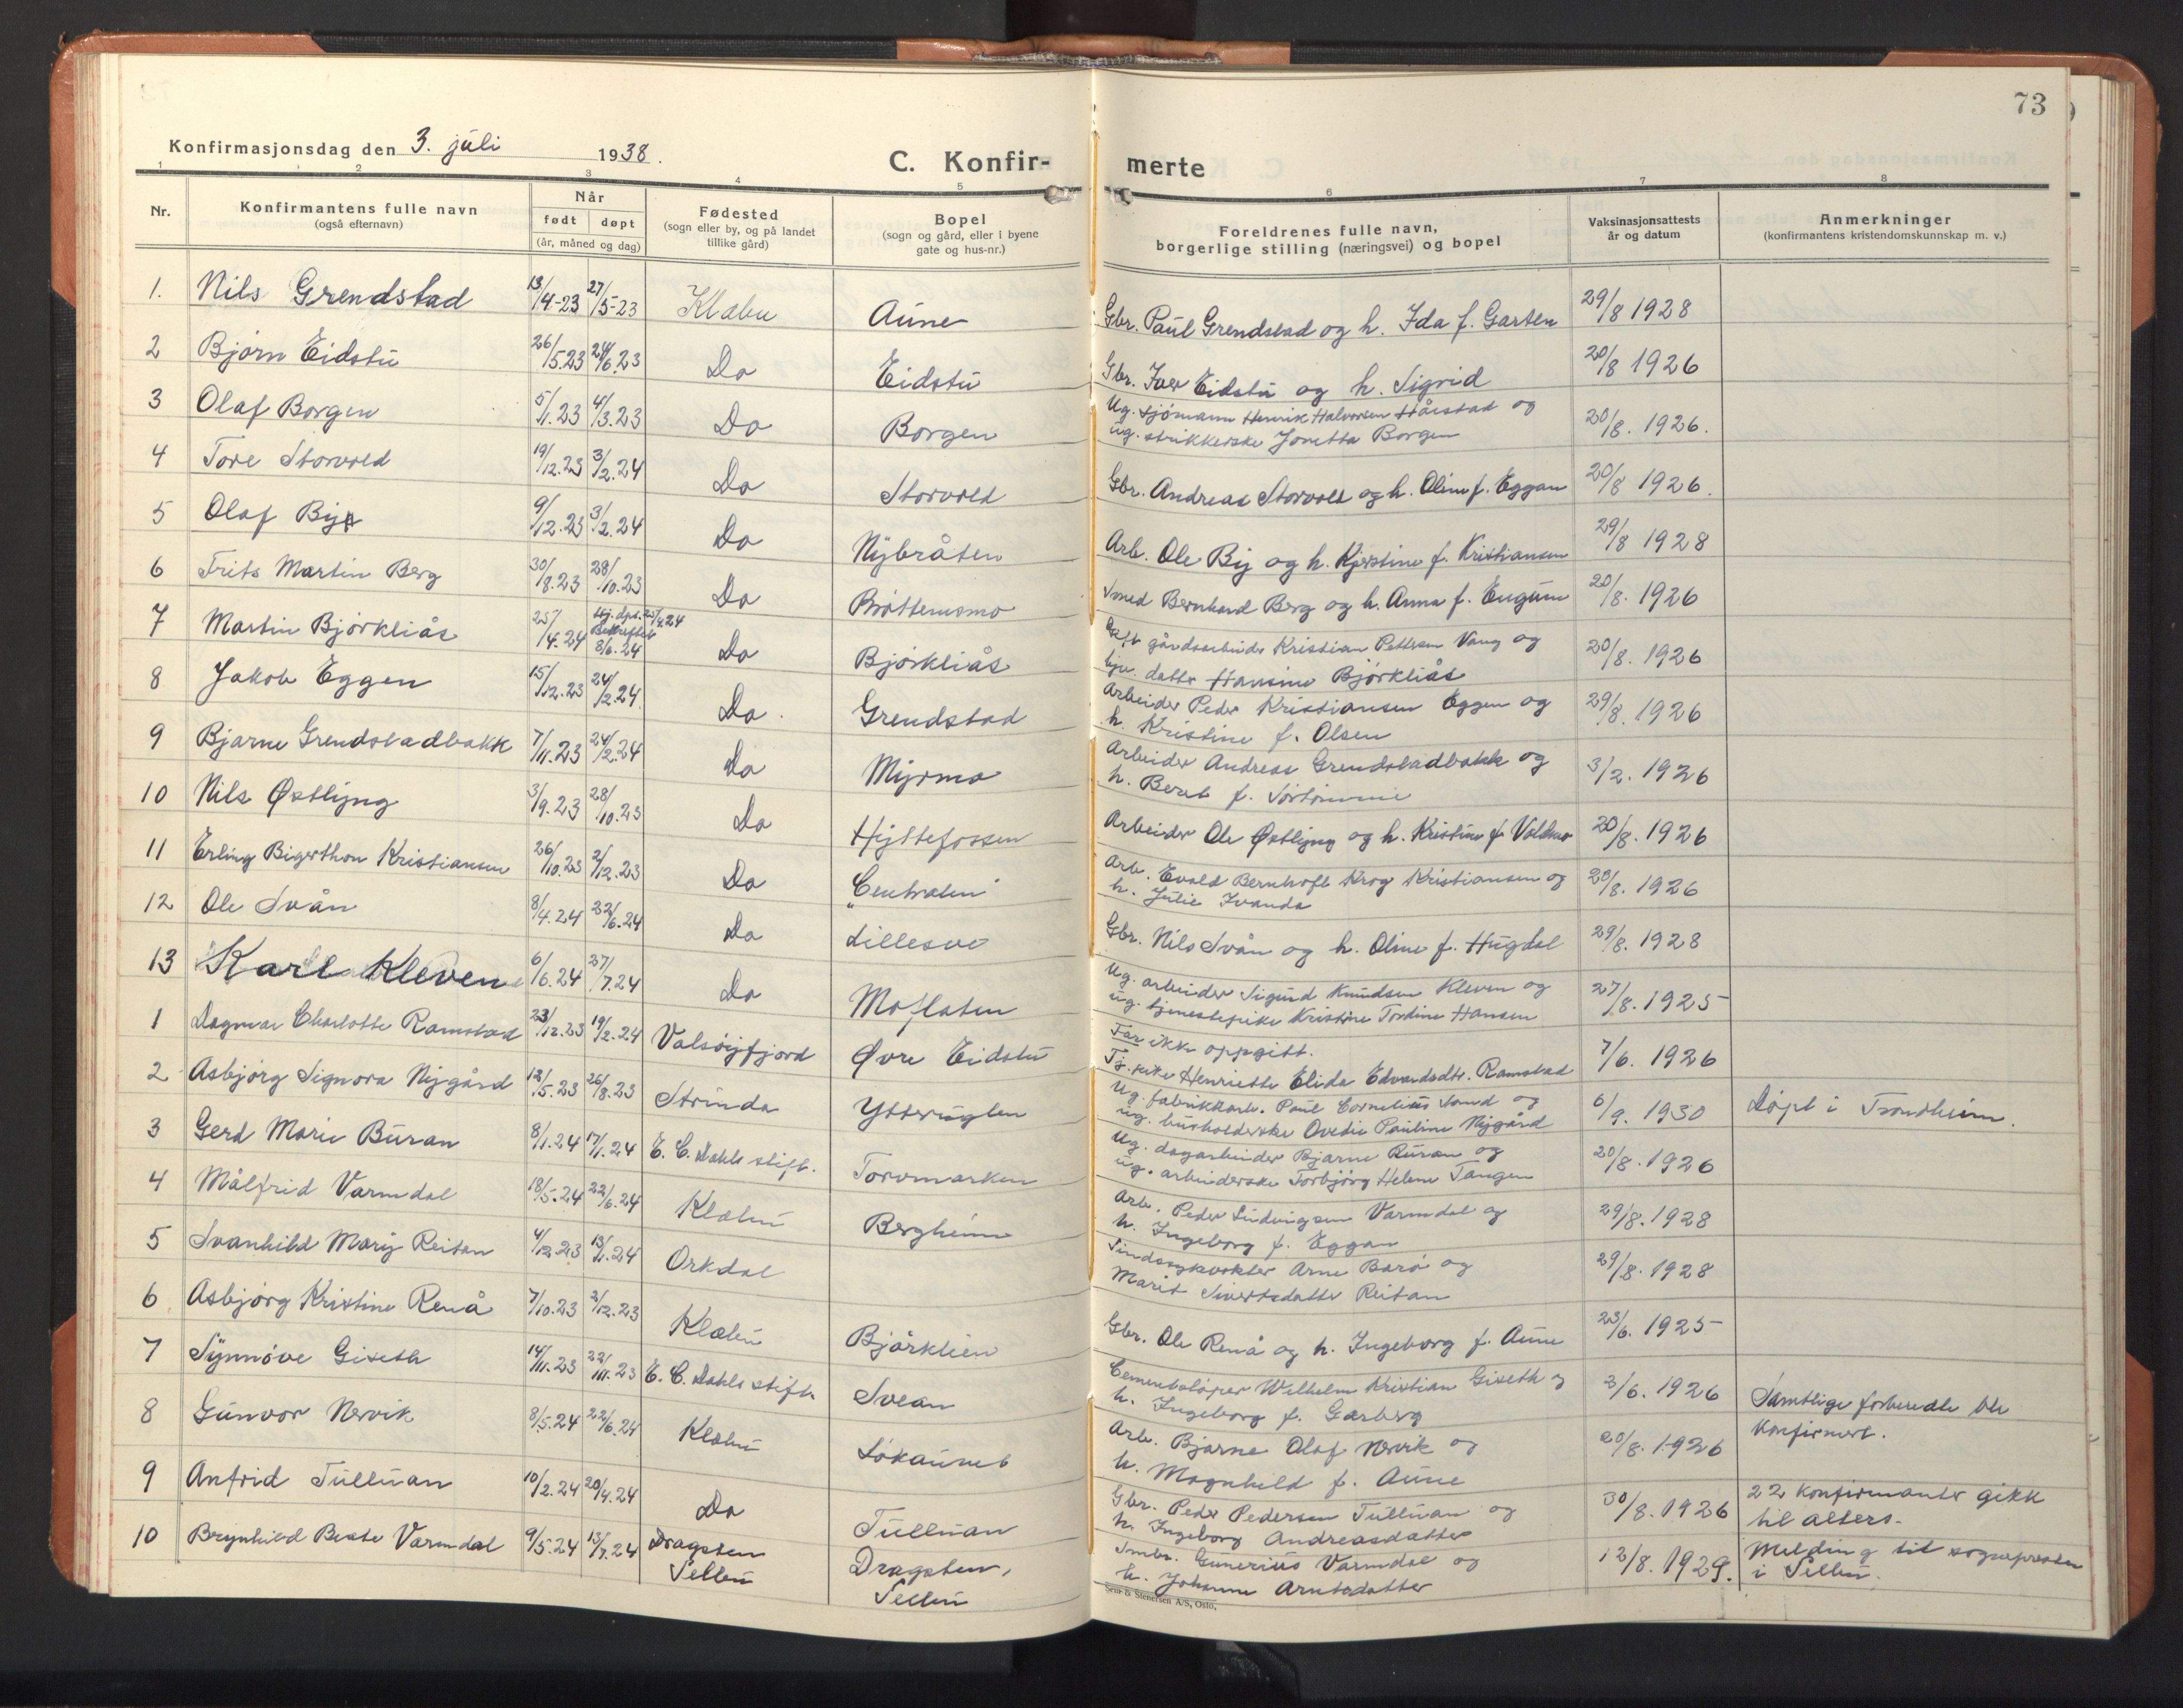 73
Konfirmasjonsdag den 3. juli 1938.
C. Konfir-
merte
1 2 3 4 5 6 7 8
Nr.
Konfirmantens fulle navn
(også efternavn)
Når
født døpt
(år, måned og dag)
Fødested
(sogn eller by, og på landet
tillike gård)
Bopel
(sogn og gård, eller i byene
gate og hus-nr.)
Foreldrenes fulle navn,
borgerlige stilling (næringsvei) og bopel
Vaksinasjonsattests
år og datum
Anmerkninger
(konfirmantens kristendomskunnskap m. v.)
1. Nils Grendstad 13/4-23 27/5-23 Klæbu Aune Gbr. Paul Grendstad og h. Ida f. Garten 29/8 1928
2 Bjørn Eidstu 26/5.23 24/6.23 Do Eidstu Gbr. Iver Eidstu og h. Sigrid 20/8 1926
3 Olaf Borgen 5/1.23 4/3.23 Do Borgen Ug. sjømann Henrik Halvorsen Hårstad og
ug. strikkerske Jonetta Borgen 20/8. 1926.
4 Tore Storvold 19/12.23 3/2.24 Do Storvold Gbr. Andreas Storvold og h. Oline f. Eggan 20/8 1926.
5 Olaf By 9/12.23 3/2.24 Do Nybråten Arb. Ole By og h. Kjerstine f. Kristiansen 29/8 1928
6 Frits Martin Berg 30/8.23 28/10.23 Do Brøttemsmo Smed Bernhard Berg og h. Anna f. Eugum 20/8. 1926
7 Martin Bjørkliås 25/4.24 Hj.døpt. 25/4.24
Bekreftet
8/6.24 Do Bjørkliås gårdsarbeider Kristian Pettersen Vang og
datter Hansine Bjørkliås 20/8. 1926
8 Jakob Eggen 15/12.23 24/2.24 Do. Grendstad Arbeider Peder Kristiansen Eggen og
h. Kristine f. Olsen 29/8. 1926
9 Bjarne Grendstadbakk 7/11.23 24/2.24 Do Myrmo Arbeider Andreas Grendstadbakk og
h. Beret f. 3/2. 1926
10 Nils Østlyng 3/9.23 28/10.23 Do Hyttefossen Arbeider Ole Østlyng og h. Kristine f. 20/8. 1926
11 Erling Bigerthon Kristiansen 26/10.23 2/12.23 Do "Centralen" Arb. Evald Bernhoft Krog Kristiansen og
h. Julie Ivanda 20/8. 1926
12 Ole Svån 8/4.24 22/6.24 Do Lillesve Gbr. Nils Svån og h. Oline f. Hugdal 29/8. 1928
13 Karl Kleven 6/6.24 27/7.24 Do Moflaten Ug. arbeider Sigurd Knudsen Kleven og
ug. tjenestepike Kristine Tordine Hansen 27/8. 1925
1 Dagmar Charlotte Ramstad 23/12.23 19/2.24 Valsøyfjord Øvre Eidstu Far ikke oppgitt.
Tj.pike Henriette Elida Edvardsdtr. Ramstad 7/6. 1926
2 Asbjørg Signora Nygård 12/5.23 26/8.23 Strinda Ytteruglen Ug. fabrikkarb. Paul Cornelius Sand og
ug. husholderske Ovedie Pauline Nygård 6/9. 1930 Døpt i Trondheim.
3 Gerd Marie Buran 8/1.24 17/1.24 E. C. Dahls stift. Torvmarken Ug. dagarbeider Bjarne Buran og
ug. arbeiderske Torbjørg Helene Tangen 20/8. 1926
4 Målfrid Varmdal 18/5.24 22/6.24 Klæbu Bergheim Arb. Peder Ludvigsen Varmdal og
h. Ingeborg f. Eggan 29/8. 1928
5 Svanhild Mary Reitan 4/12.23 13/1.24 Orkdal Sindssykvokter Arne Barø og
Marit Sivertsdatter Reitan 29/8. 1928
6 Asbjørg Kristine Renå 7/10.23 2/12.23 Klæbu Bjørklien Gbr. Ole Renå og h. Ingeborg f. Aune 23/6. 1925
7 Synnøve Giseth 14/11.23 22/11.23 E. C. Dahls stift. Svean Cementstøper Wilhelm Kristian Giseth og
h. Ingeborg f. Garberg 3/6. 1926 Samtlige forberedte ble
konfirmert.
8 Gunvor Nervik 8/5.24 22/6.24 Klæbu Løkaunet Arb. Bjarne Olaf Nervik og
h. Magnhild f. Aune 20/8. 1926
9 Anfrid Tulluan 10/2.24 20/4.24 Do Tulluan Gbr. Peder Pedersen Tulluan og
h. Ingeborg Andreasdatter 30/8. 1926 22 konfirmanter gikk
til alters.
10 Brynhild Beate Varmdal 9/5.24 13/7.24 Dragsten
Selbu Dragsten,
Selbu Småbr. Gunerius Varmdal og
h. Johanna Arntsdatter 12/8. 1929. Melding til sogneprest
i Selbu.
Sem & Stenersen A/S, Oslo.